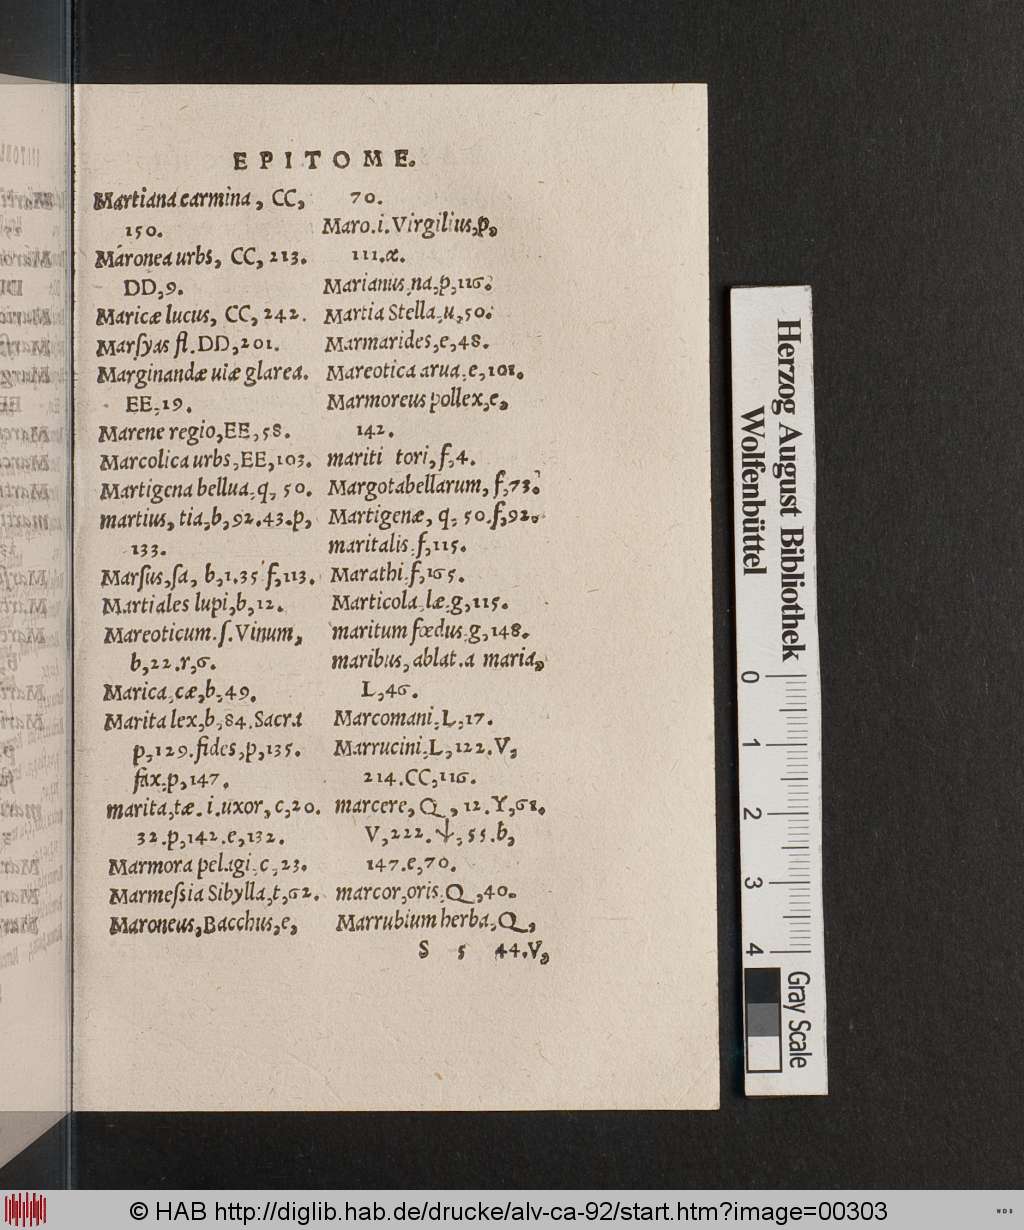 EPITOME.
Martiana carmina, CC,
150.
Maronea urbs, CC, 213.
DD, 9.
Maricæ lucus, CC, 242.
Marſyas fl. DD, 201.
Marginandæ uiæ glarea.
EE, 19.
Marene regio, EE, 58.
Marcolica urbs, EE, 103.
Martigena bellua, q, 50.
martius, tia, b, 92.43.p,
133.
Marſus, ſa, b, 1.35 f, 113.
Martiales lupi, b, 12.
Mareoticum. ſ. Vinum,
b, 22.r, 6.
Marica, cæ, b, 49.
Marita lex, b, 84. Sacra
p, 129. fides, p, 135.
fax, p, 147.
marita, tæ. i. uxor, c, 20.
32.p, 142.e, 132.
Marmora pelagi, c, 23.
Marmeſsia Sibylla, t, 62.
Maroneus, Bacchus, e,
70.
Maro. i. Virgilius, p,
111.æ.
Marianus, na, p, 116.
Martia Stella, u, 50.
Marmarides, e, 48.
Mareotica arua, e, 101.
Marmoreus pollex, e,
142.
mariti tori, f, 4.
Margotabellarum, f, 73.
Martigenæ, q, 50.f, 92.
maritalis. f, 115.
Marathi. f, 165.
Marticola, læ. g, 115.
maritum fœdus. g, 148.
maribus, ablat. a maria,
L, 46.
Marcomani, L, 17.
Marrucini, L, 122. V,
214. CC, 116.
marcere, Q, 12. Y, 68.
V, 222. , 55. b,
147.e, 70.
marcor, oris. Q, 40.
Marrubium herba, Q,
S 5 44.V,
Herzog August Bibliothek
Wolfenbüttel
0 1 2 3 4
Gray Scale
© HAB http://diglib.hab.de/drucke/alv-ca-92/start.htm?image=00303